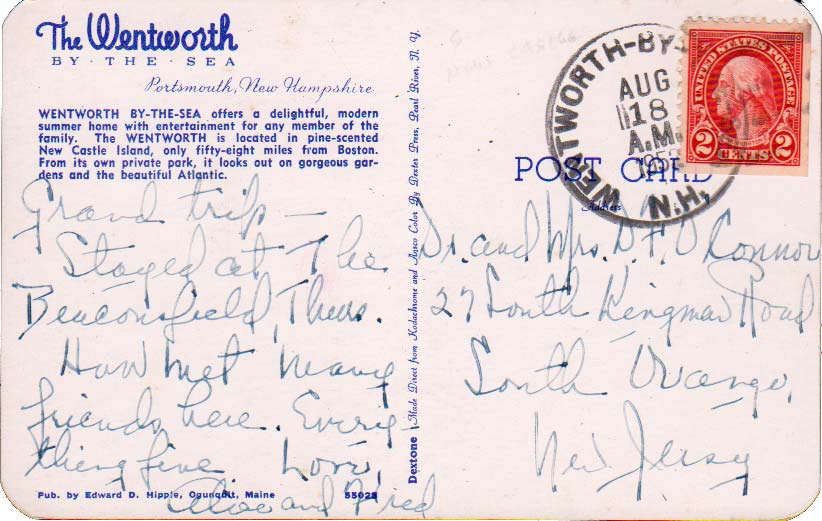 The Wentworth
BY · THE · SEA
Portsmouth, New Hampshire
WENTWORTH BY-THE-SEA offers a delightful, modern
summer home with entertainment for any member of the
family. The WENTWORTH is located in pine-scented
New Castle Island, only fifty-eight miles from Boston.
From its own private park, it looks out on gorgeous gar-
dens and the beautiful Atlantic.
Grand trip —
Stayed at The
Beaconsfield, Thurs.
Have met many
friends here. Every-
thing fine Love,
Alice and Fred
Pub. by Edward D. Hipple, Ogunquit, Maine
55028
Dextone Made Direct from Kodachrome and Ansco Color By Dexter Press, Pearl River, N. Y.
WENTWORTH-BY-
N.H.
AUG
18
A.M.
UNITED STATES POSTAGE
2 CENTS 2
POST CARD
Address
Dr. and Mrs. D. F. O'Connor
27 South Kingman Road
South Orange,
New Jersey